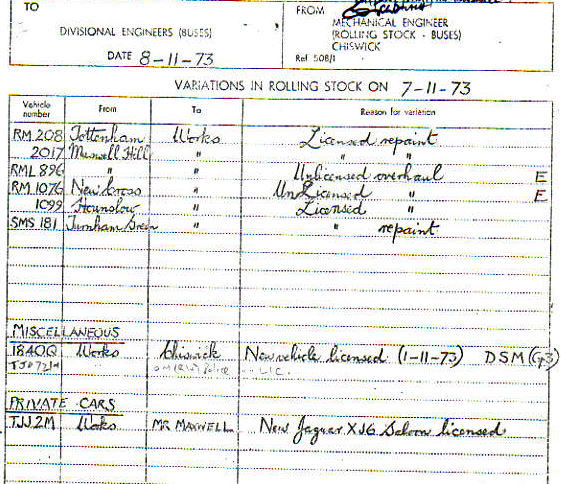 TO
FROM
MECHANICAL ENGINEER
(ROLLING STOCK - BUSES)
CHISWICK
DIVISIONAL ENGINEERS (BUSES)
DATE 8-11-73
Ref 508/1
VARIATIONS IN ROLLING STOCK ON 7-11-73
Vehicle number From To Reason for variation
RM 208 Tottenham Works Licensed repaint
2017 Muswell Hill " " "
RML 896 " " Unlicensed overhaul E
RM 1076 New Cross " UnLicensed " E
1099 Hounslow " Licensed "
SMS 181 Turnham Green " " repaint
MISCELLANEOUS
1840Q Works Chiswick New vehicle licensed (1-11-73) DSM (Gp3)
LIC.
PRIVATE CARS
TJJ2M Works MR MAXWELL New Jaguar XJ6 Saloon licensed